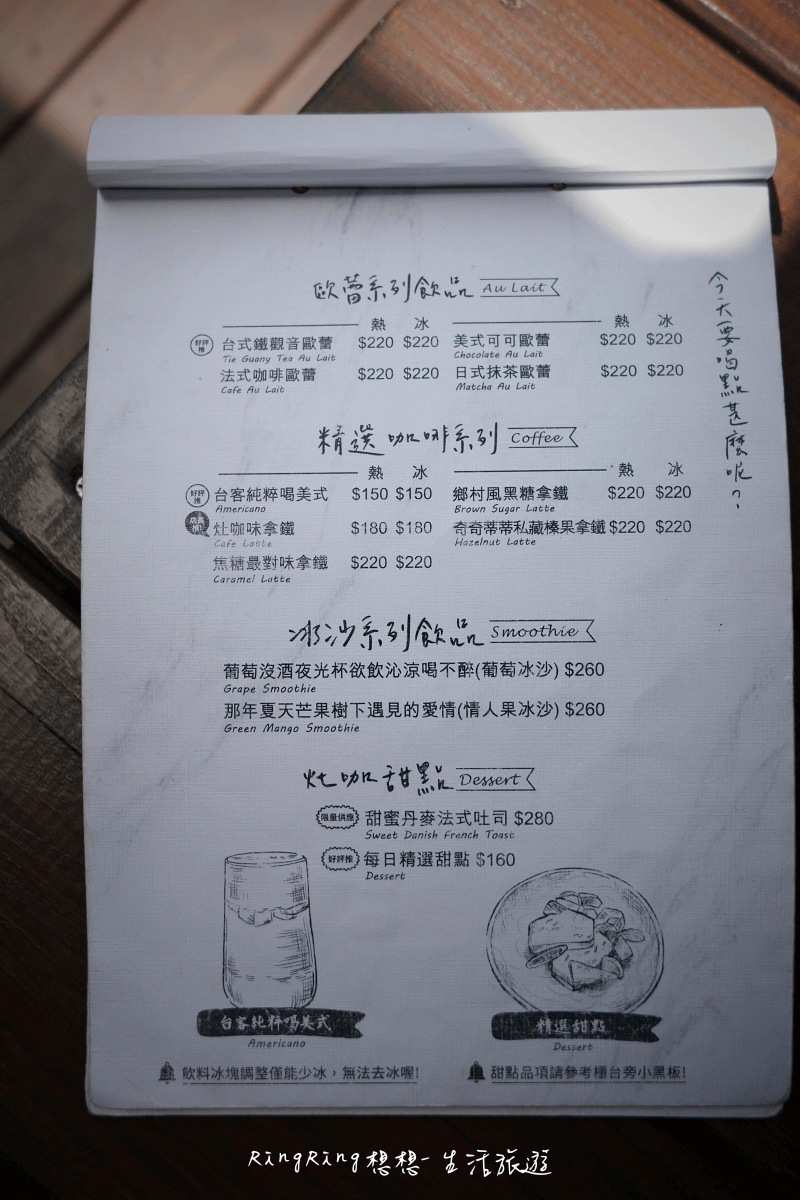 歐蕾系列飲品 Au Lait
熱 冰 熱 冰
好評推 台式鐵觀音歐蕾 $220 $220 美式可可歐蕾 $220 $220
Tie Guany Tea Au Lait Chocolate Au Lait
法式咖啡歐蕾 $220 $220 日式抹茶歐蕾 $220 $220
Cafe Au Lait Matcha Au Lait
今天要喝點甚麼呢?
精選咖啡系列 Coffee
熱 冰 熱 冰
好評推 台客純粹喝美式 $150 $150 鄉村風黑糖拿鐵 $220 $220
Americano Brown Sugar Latte
灶咖味拿鐵 $180 $180 奇奇蒂蒂私藏榛果拿鐵 $220 $220
Cafe Latte Hazelnut Latte
焦糖最對味拿鐵 $220 $220
Caramel Latte
冰沙系列飲品 Smoothie
葡萄沒酒夜光杯欲飲沁涼喝不醉(葡萄冰沙) $260
Grape Smoothie
那年夏天芒果樹下遇見的愛情(情人果冰沙) $260
Green Mango Smoothie
灶咖甜點 Dessert
限量供應 甜蜜丹麥法式吐司 $280
Sweet Danish French Toast
好評推 每日精選甜點 $160
Dessert
台客純粹喝美式 精選甜點
Americano Dessert
飲料冰塊調整僅能少冰，無法去冰喔! 甜點品項請參考櫃台旁小黑板!
RingRing想想-生活旅遊